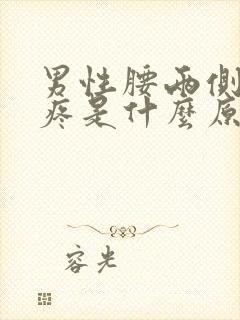 男性腰兩側
疼是什麼原
容光